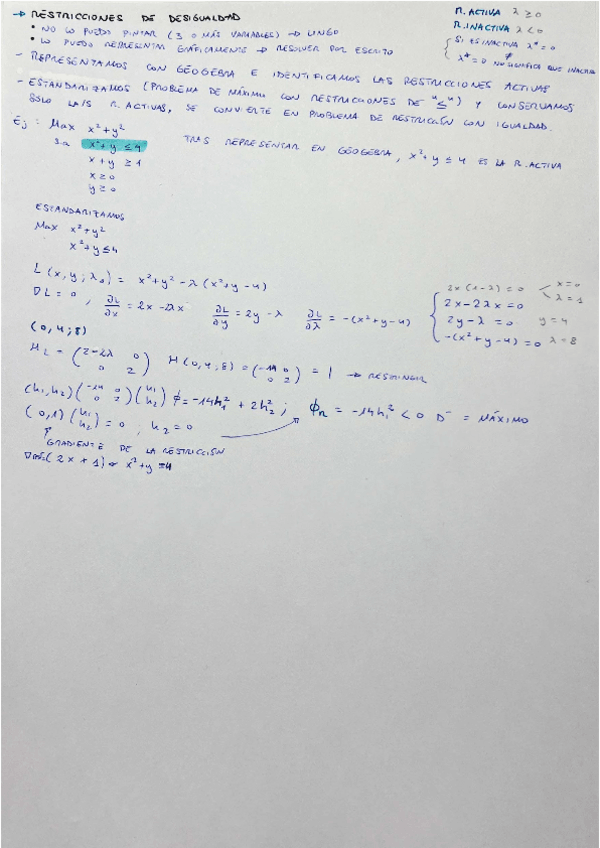 → RESTRICCIONES DE DESIGUALDAD
• NO LO PUEDO PINTAR (3 O MÁS VARIABLES) → LINGO
• LO PUEDO REPRESENTAR GRÁFICAMENTE → RESOLVER POR ESCRITO
R. ACTIVA λ ≥ 0
R. INACTIVA λ < 0
{ SI ES INACTIVA λ* = 0
λ* = 0 NO SIGNIFICA QUE INACTIVA
- REPRESENTAMOS CON GEOGEBRA E IDENTIFICAMOS LAS RESTRICCIONES ACTIVAS
- ESTANDARIZAMOS (PROBLEMA DE MÁXIMO CON RESTRICCIONES DE "≤") Y CONSERVAMOS
SÓLO LA/S R. ACTIVAS, SE CONVIERTE EN PROBLEMA DE RESTRICCIÓN CON IGUALDAD.
Ej: Max x²+y²
s.a x²+y ≤ 4
TRAS REPRESENTAR EN GEOGEBRA, x²+y ≤ 4 ES LA R. ACTIVA
x+y ≥ 1
x ≥ 0
y ≥ 0
ESTANDARIZAMOS
Max x²+y²
x²+y ≤ 4
L(x, y; λ) = x²+y² - λ(x²+y-4)
∇L = 0, ∂L/∂x = 2x - 2λx ∂L/∂y = 2y - λ ∂L/∂λ = -(x²+y-4)
2x(1-λ) = 0 < x=0 λ=1
{ 2x - 2λx = 0
2y - λ = 0 y = 4
-(x²+y-4) = 0 λ = 8
(0,4;8)
HL = (2-2λ 0 0 2) H(0,4;8) = (-14 0 0 2) = I → RESTRINGIR
(h₁,h₂)(-14 0 0 2)(h₁ h₂) ϕ = -14h₁² + 2h₂²; ϕR = -14h₁² < 0 D⁻ = MÁXIMO
(0,1)(h₁ h₂) = 0, h₂ = 0
GRADIENTE DE LA RESTRICCIÓN
(2x + 1) x²+y = 4